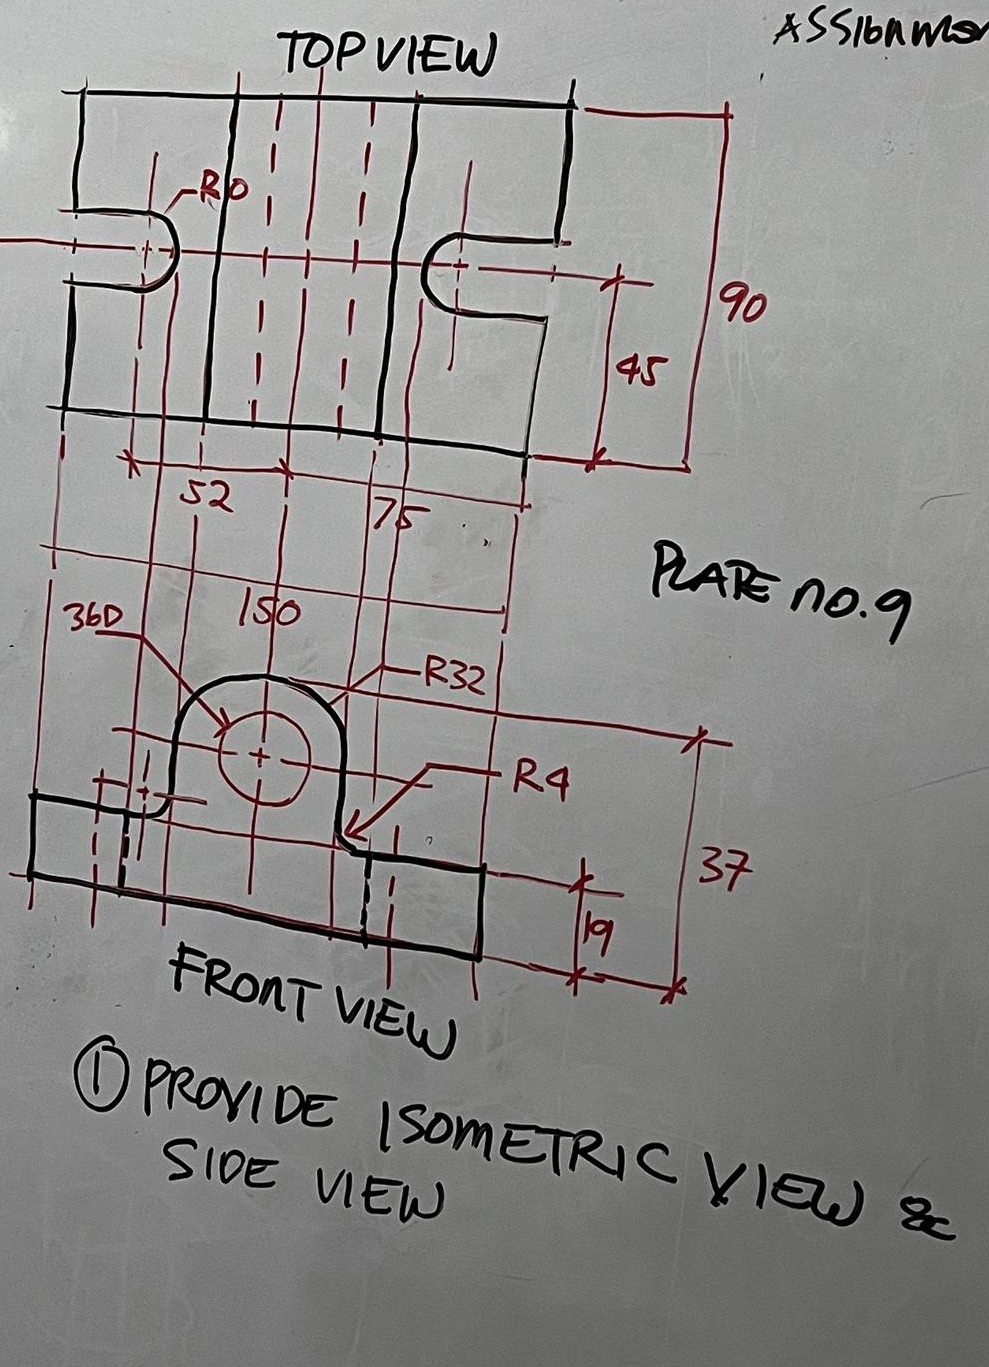 ASSIGNMEN
TOP VIEW
R10
90
45
52
75
PLATE NO.9
150
36D
R32
R4
37
19
FRONT VIEW
① PROVIDE ISOMETRIC VIEW &
SIDE VIEW